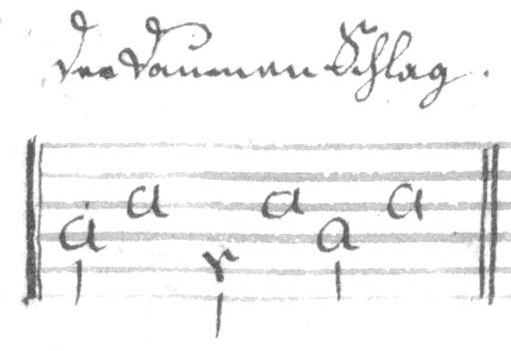 der Daumen Schlag.
a a r a a a